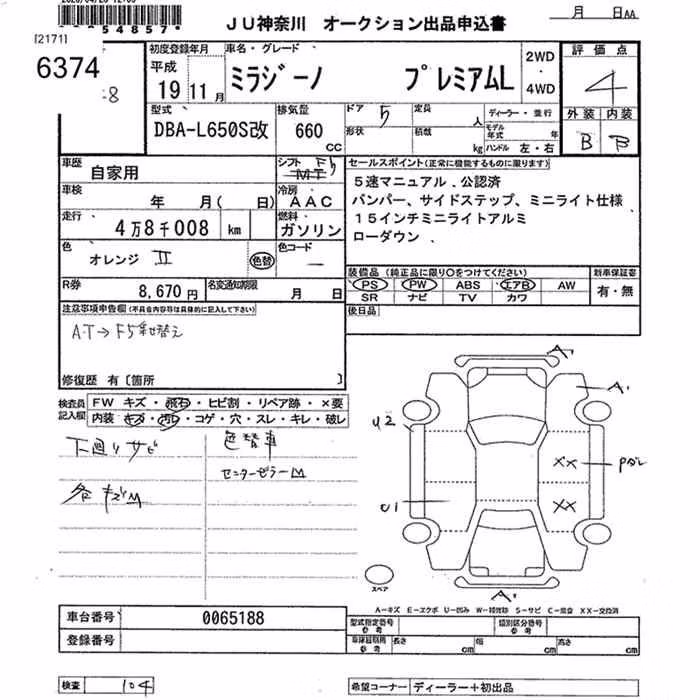 54857
JU神奈川 オークション出品申込書
月 日AA
[2171]
6374
8
初度登録年月
平成
19 11月
車名・グレード
ミラジーノ プレミアムL
2WD
・
4WD
評価点
4
外装 内装
B B
型式
DBA-L650S改
排気量
660
CC
ドア
5
定員
人
形状
積載
kg
ディーラー・並行
モデル年式 年
ハンドル 左・右
車歴
自家用
シフト F5
MT
車検
年 月( 日)
冷房
AAC
走行
4万8千008 km
燃料
ガソリン
色
オレンジ II
色替
色コード
R券
8,670円
名変通知期限
月 日
セールスポイント(正常に機能するものに限ります)
5速マニュアル、公認済
バンパー、サイドステップ、ミニライト仕様
15インチミニライトアルミ
ローダウン
装備品(純正品に限り○をつけてください)
PS PW ABS エアB AW
SR ナビ TV カワ
新車保証書
有・無
後日品
注意事項申告欄(不具合内容等は具体的に記入して下さい)
A.T→F5載せ替え
修復歴 有[箇所 ]
検査員
記入欄
FW キズ・飛石・ヒビ割・リペア跡・×要
内装 キズ・汚れ・コゲ・穴・スレ・キレ・破レ
下廻りサビ
色替車
各キズM
A
A
U2
XX
Pダレ
U1
XX
A
スペア
A―キズ E―エクボ U―凹み W―補修跡 S―サビ C―腐食 XX―交換済
車台番号 0065188
登録番号
型式指定番号
参考
類別区分番号
参考
車庫証明用
参考
長さ cm 幅 cm 高さ cm
検査 104
希望コーナー ディーラー+初出品